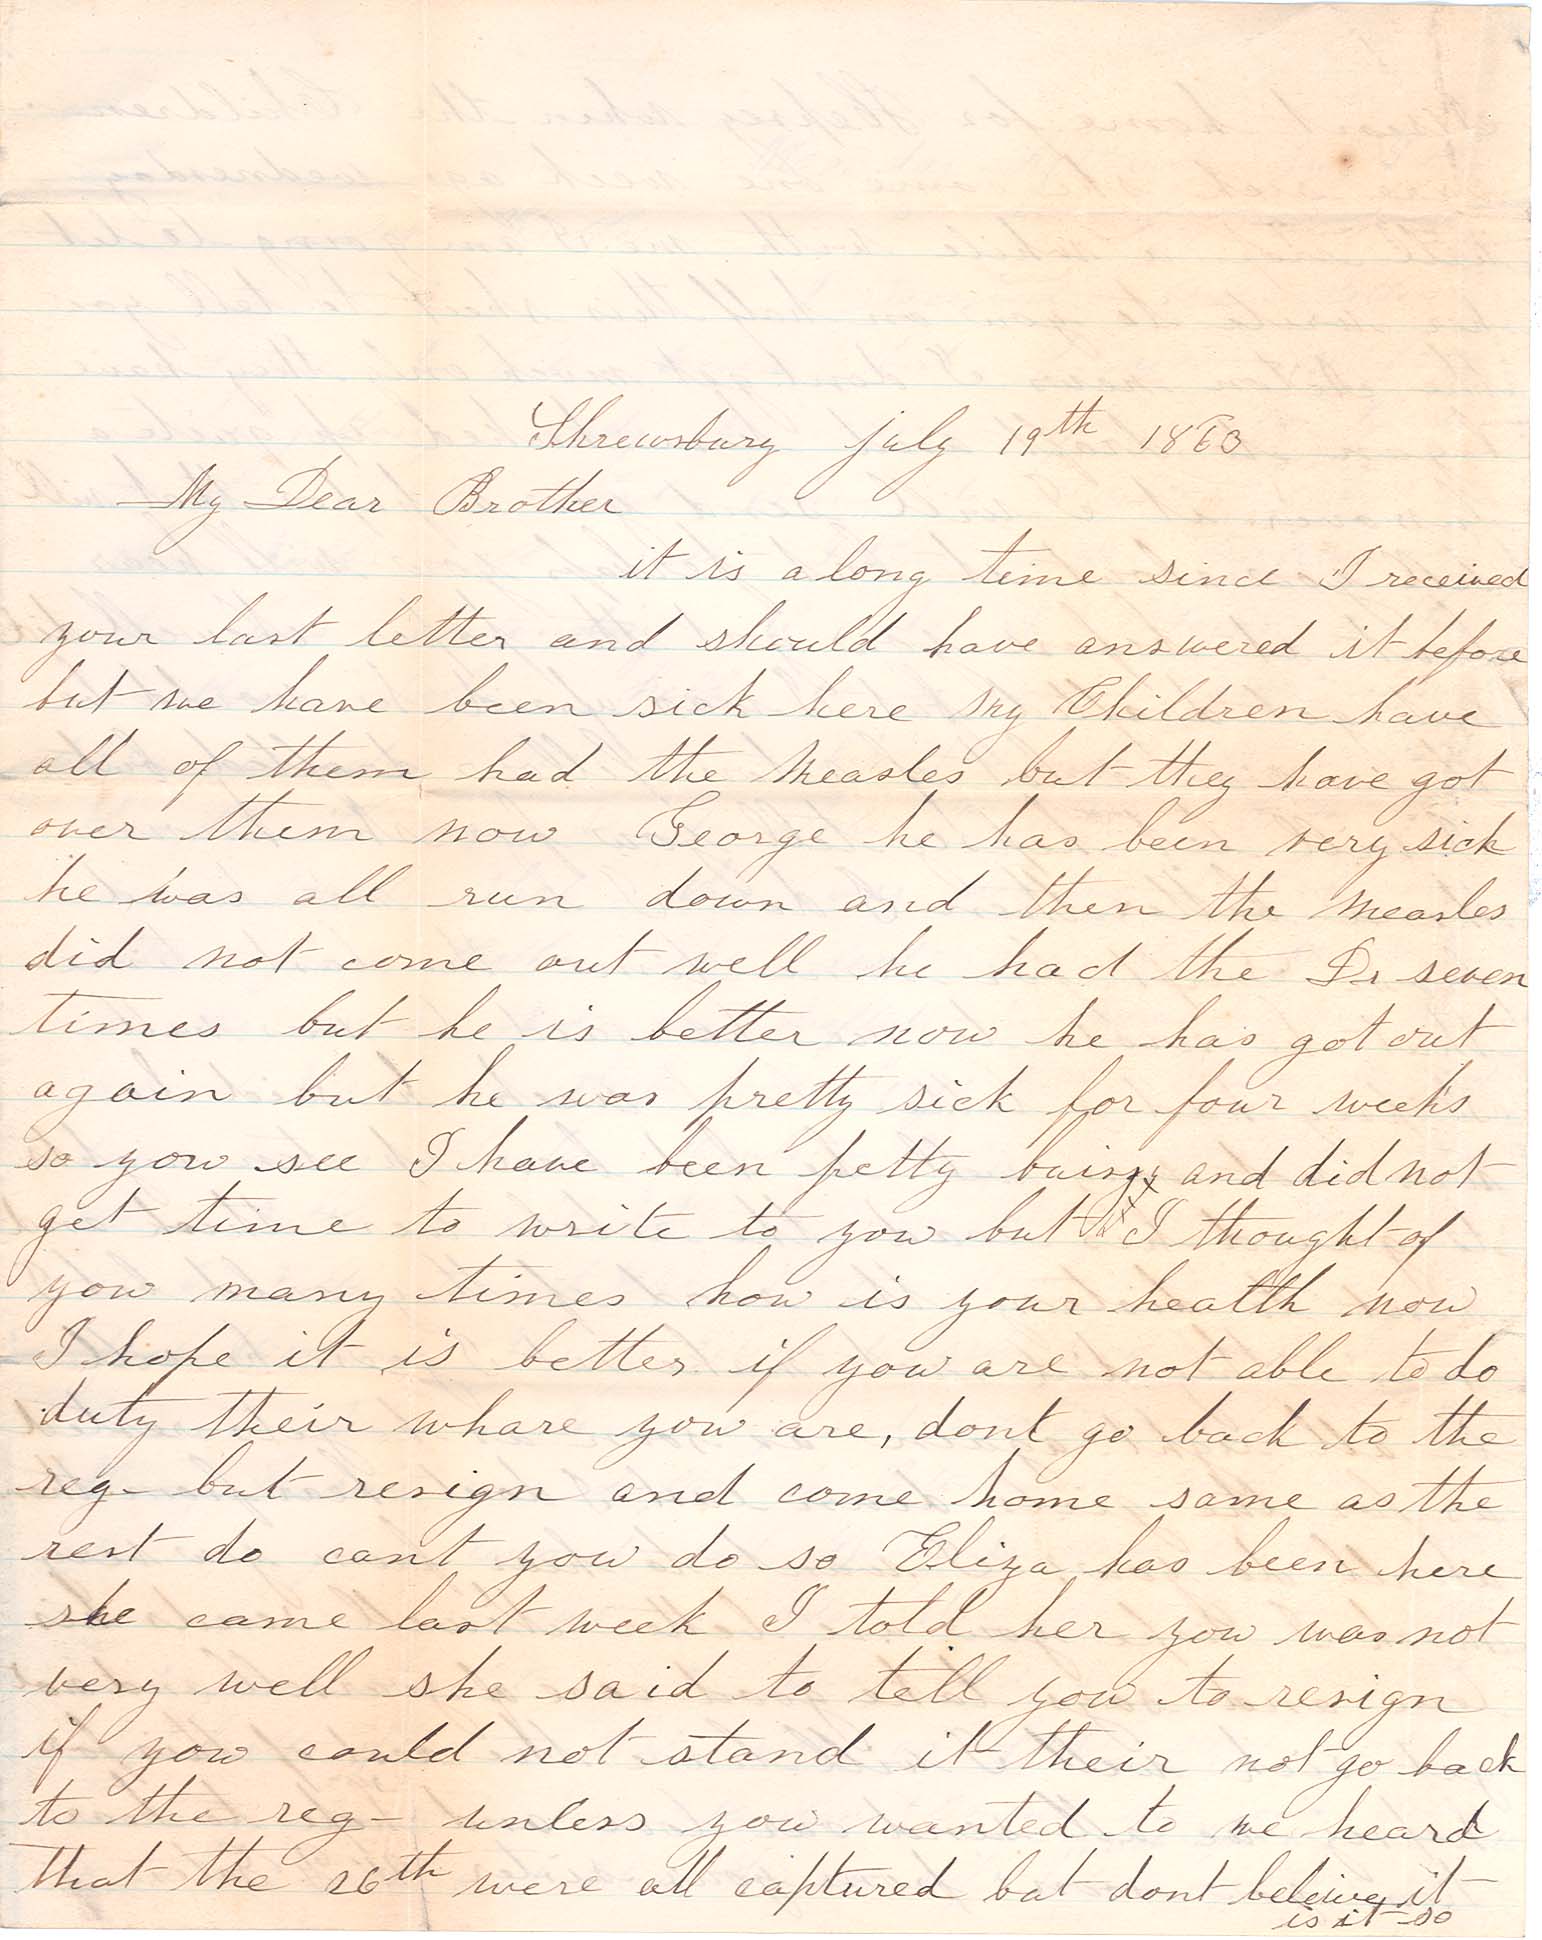 Shrewsbury july 19th 1863
My Dear Brother
it is a long time since I received
your last letter and should have answered it before
but we have been sick here my Children have
all of them had the measles but they have got
over them now George he has been very sick
he was all run down and then the measles
did not come out well he had the Dr seven
times but he is better now he has got out
again but he was pretty sick for four weeks
so you see I have been petty and did not
get time to write to you but I thought of
you many times how is your health now
I hope it is better if you are not able to do
duty their whare you are, dont go back to the
reg- but resign and come home same as the
rest do cant you do so Eliza has been here
she came last week I told her you was not
very well she said to tell you to resign
if you could not stand it their not go back
to the reg- unless you wanted to we heard
that the 26th were all captured but dont beleive it
is it so